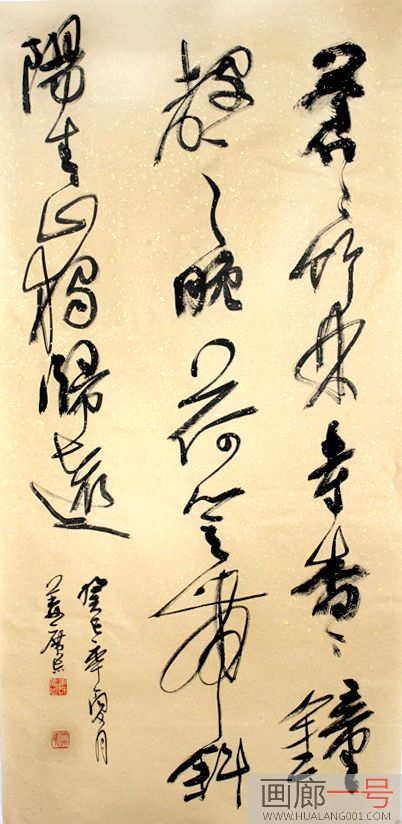 蒼〻竹林寺杳〻鐘
聲晚荷笠帶斜
陽青山獨歸遠
癸巳年夏月
画廊一号
WWW.HUALANG001.COM